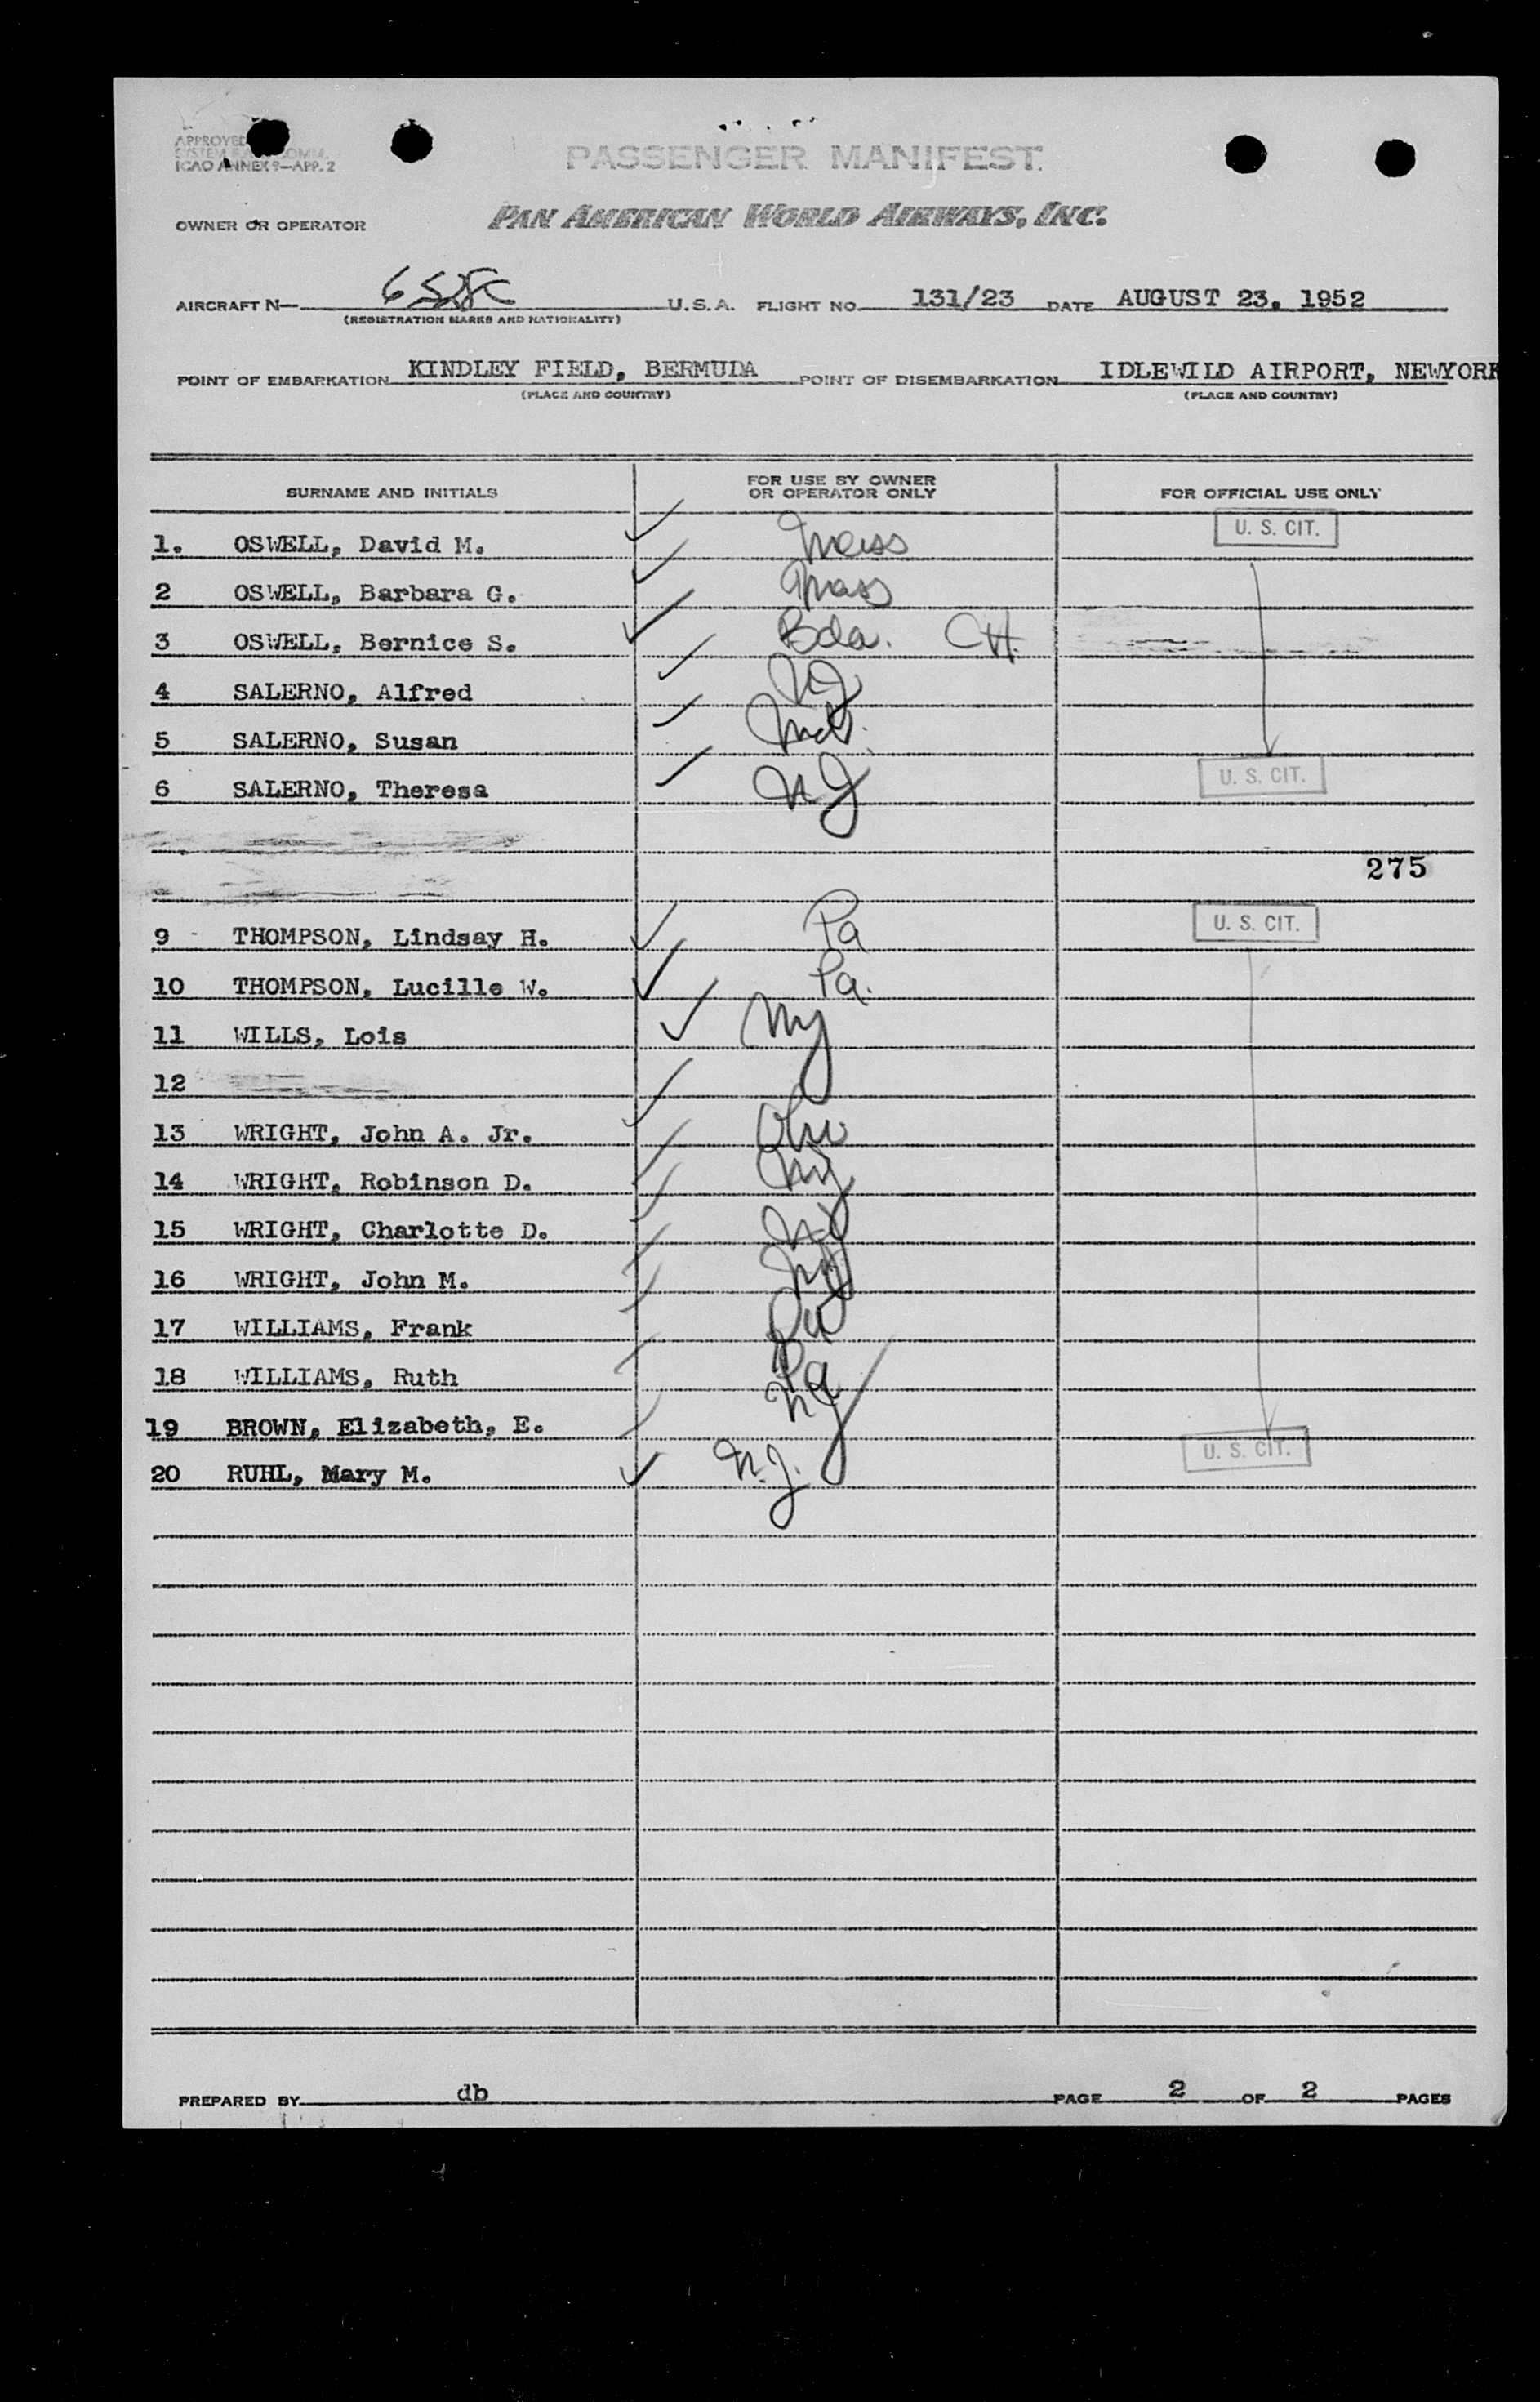 APPROVED
SYSTEM COMM.
ICAO ANNEX 9—APP. 2
PASSENGER MANIFEST
OWNER OR OPERATOR PAN AMERICAN WORLD AIRWAYS, INC.
AIRCRAFT N— U.S.A. FLIGHT NO. 131/23 DATE AUGUST 23, 1952
(REGISTRATION MARKS AND NATIONALITY)
POINT OF EMBARKATION KINDLEY FIELD, BERMUDA POINT OF DISEMBARKATION IDLEWILD AIRPORT, NEWYORK
(PLACE AND COUNTRY) (PLACE AND COUNTRY)
SURNAME AND INITIALS FOR USE BY OWNER OR OPERATOR ONLY FOR OFFICIAL USE ONLY
1. OSWELL, David M. Mass U. S. CIT.
2 OSWELL, Barbara G. Mass
3 OSWELL, Bernice S. Bda. CH.
4 SALERNO, Alfred NJ
5 SALERNO, Susan
6 SALERNO, Theresa NJ U. S. CIT.
275
9 THOMPSON, Lindsay H. Pa U. S. CIT.
10 THOMPSON, Lucille W. Pa.
11 WILLS, Lois Ny
12
13 WRIGHT, John A. Jr. Ohio
14 WRIGHT, Robinson D. NY
15 WRIGHT, Charlotte D.
16 WRIGHT, John M.
17 WILLIAMS, Frank Pa
18 WILLIAMS, Ruth Pa
19 BROWN, Elizabeth, E. NY
20 RUHL, Mary M. N.J. U. S. CIT.
PREPARED BY db PAGE 2 OF 2 PAGES